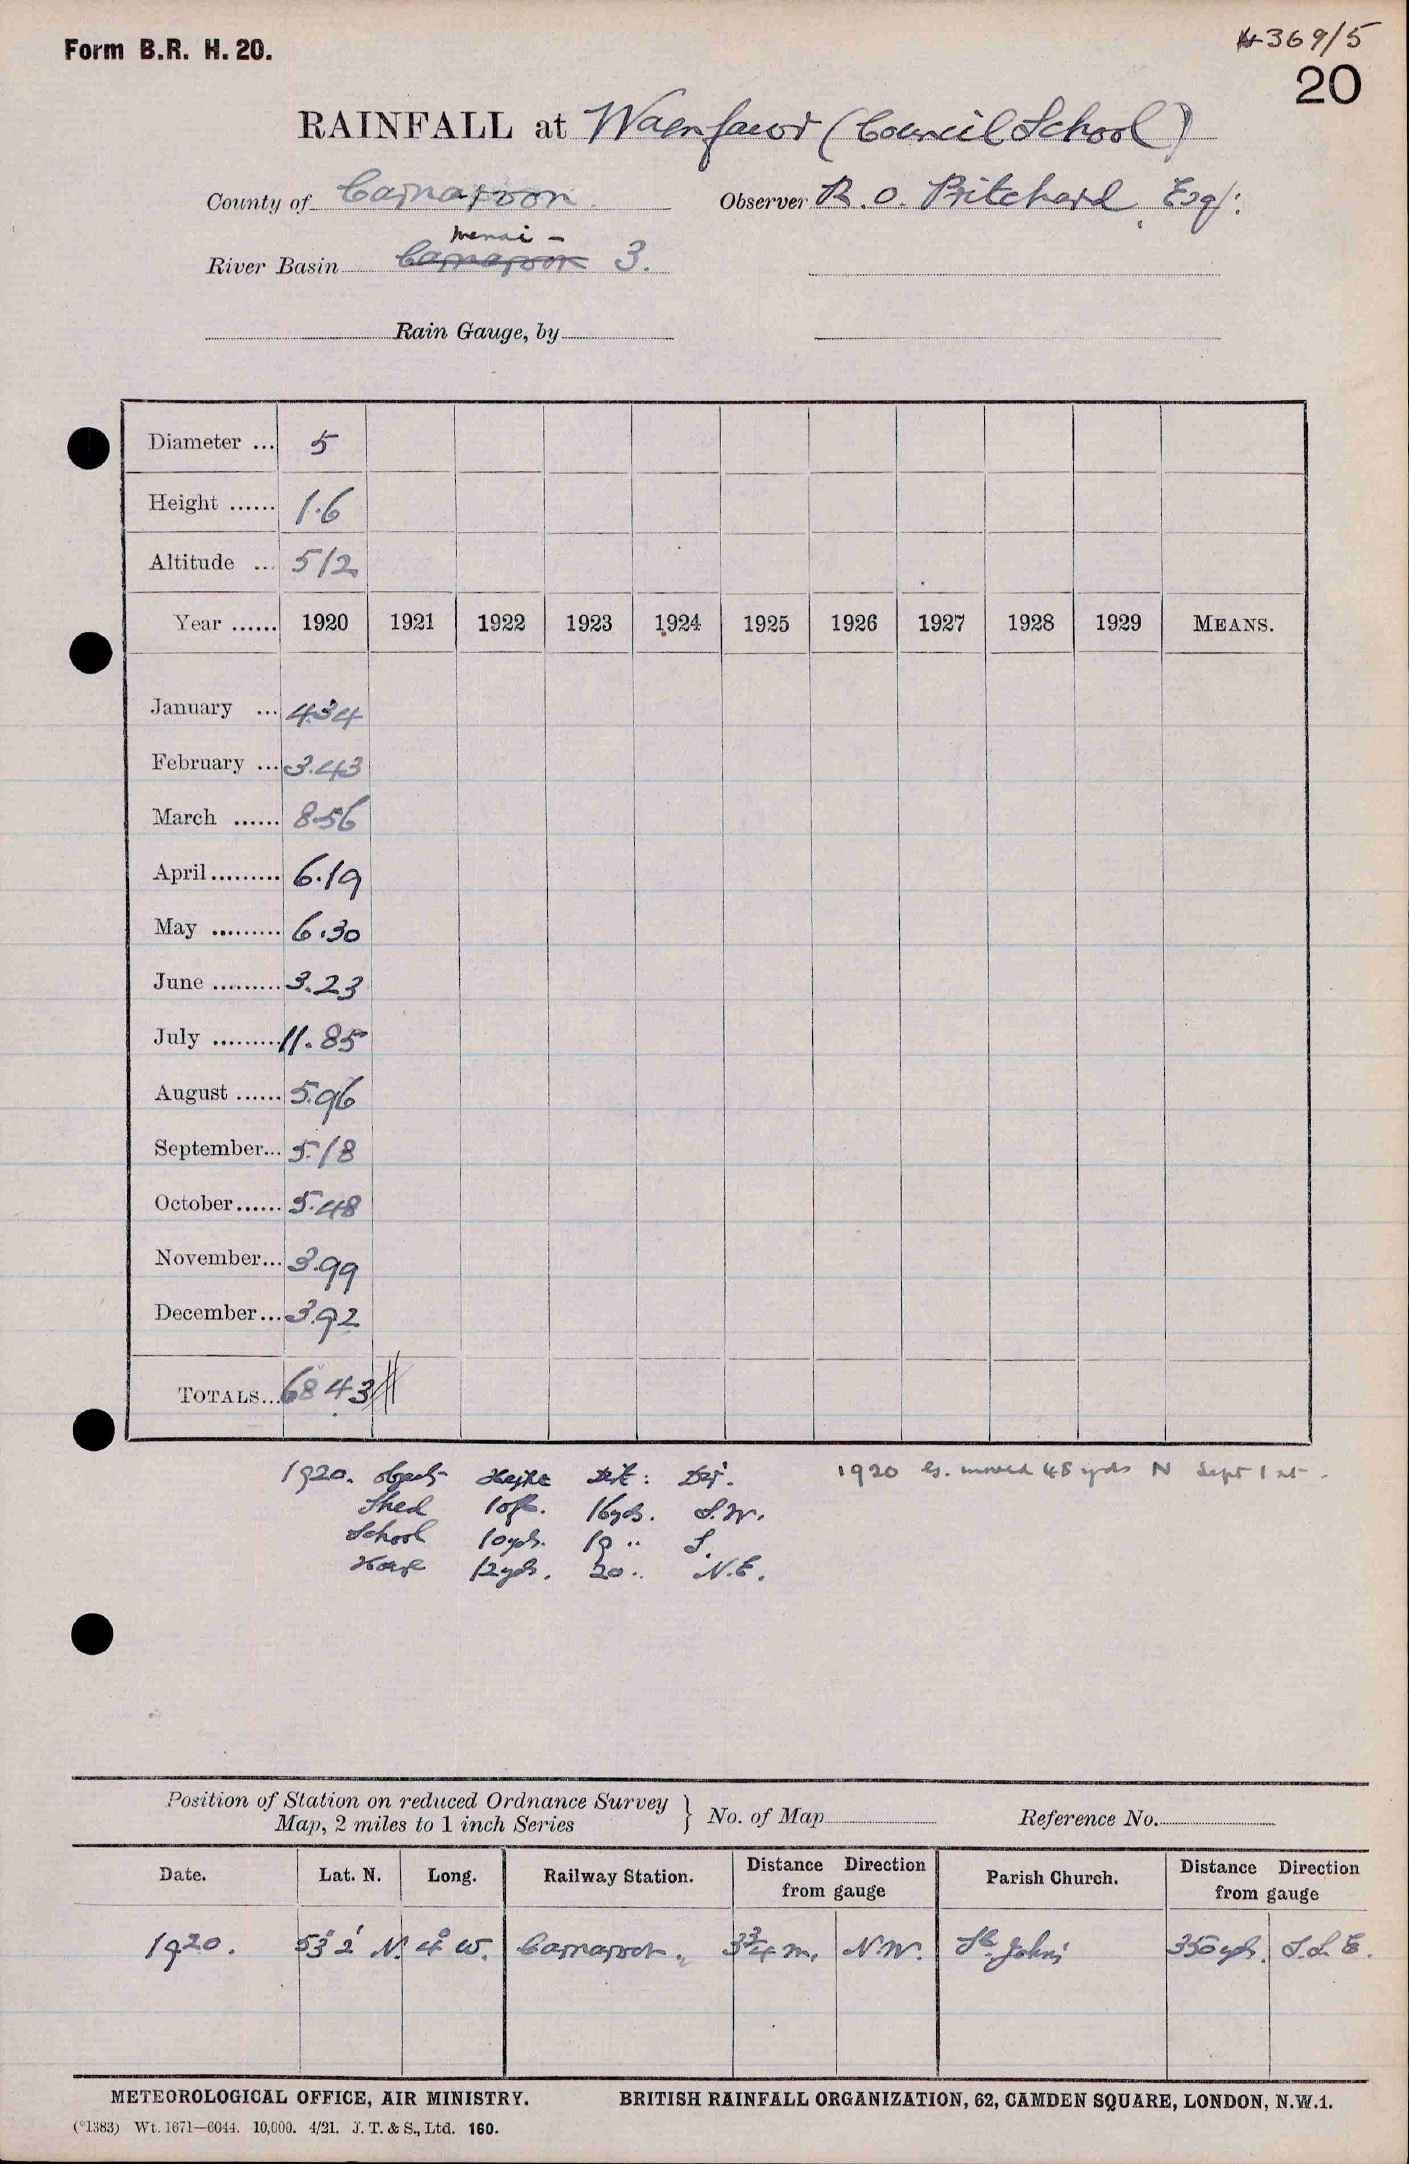 Form B.R. H. 20.
4369/5
20
RAINFALL at Waenfawr (Council School)
County of Carnarvon.
Observer R. O. Pritchard, Esq:
Menai -
River Basin Carnarvon 3.
Rain Gauge, by
Diameter ... 5
Height ...... 1.6
Altitude ... 512
Year ...... 1920 1921 1922 1923 1924 1925 1926 1927 1928 1929 MEANS.
January ... 4.34
February ... 3.43
March ...... 8.56
April ......... 6.19
May ......... 6.30
June ......... 3.23
July ......... 11.85
August ...... 5.96
September... 5.18
October...... 5.48
November... 3.99
December... 3.92
TOTALS... 68.43
1920. Objects Height Dist: Dir.
1920 G. moved 48 yds N Sept 1st.
Shed 10ft. 16yds. S.W.
School 10yds. 19 " S.
House 12yds. 20 " N.E.
Position of Station on reduced Ordnance Survey
Map, 2 miles to 1 inch Series } No. of Map Reference No.
Date. Lat. N. Long. Railway Station. Distance Direction from gauge Parish Church. Distance Direction from gauge
1920. 53° 2' N. 4° W. Carnarvon. 3 3/4 m. N.W. St. Johns 350 yds. S.S.E.
METEOROLOGICAL OFFICE, AIR MINISTRY. BRITISH RAINFALL ORGANIZATION, 62, CAMDEN SQUARE, LONDON, N.W.1.
(*1383) Wt. 1671—6044. 10,000. 4/21. J. T. & S., Ltd. 160.